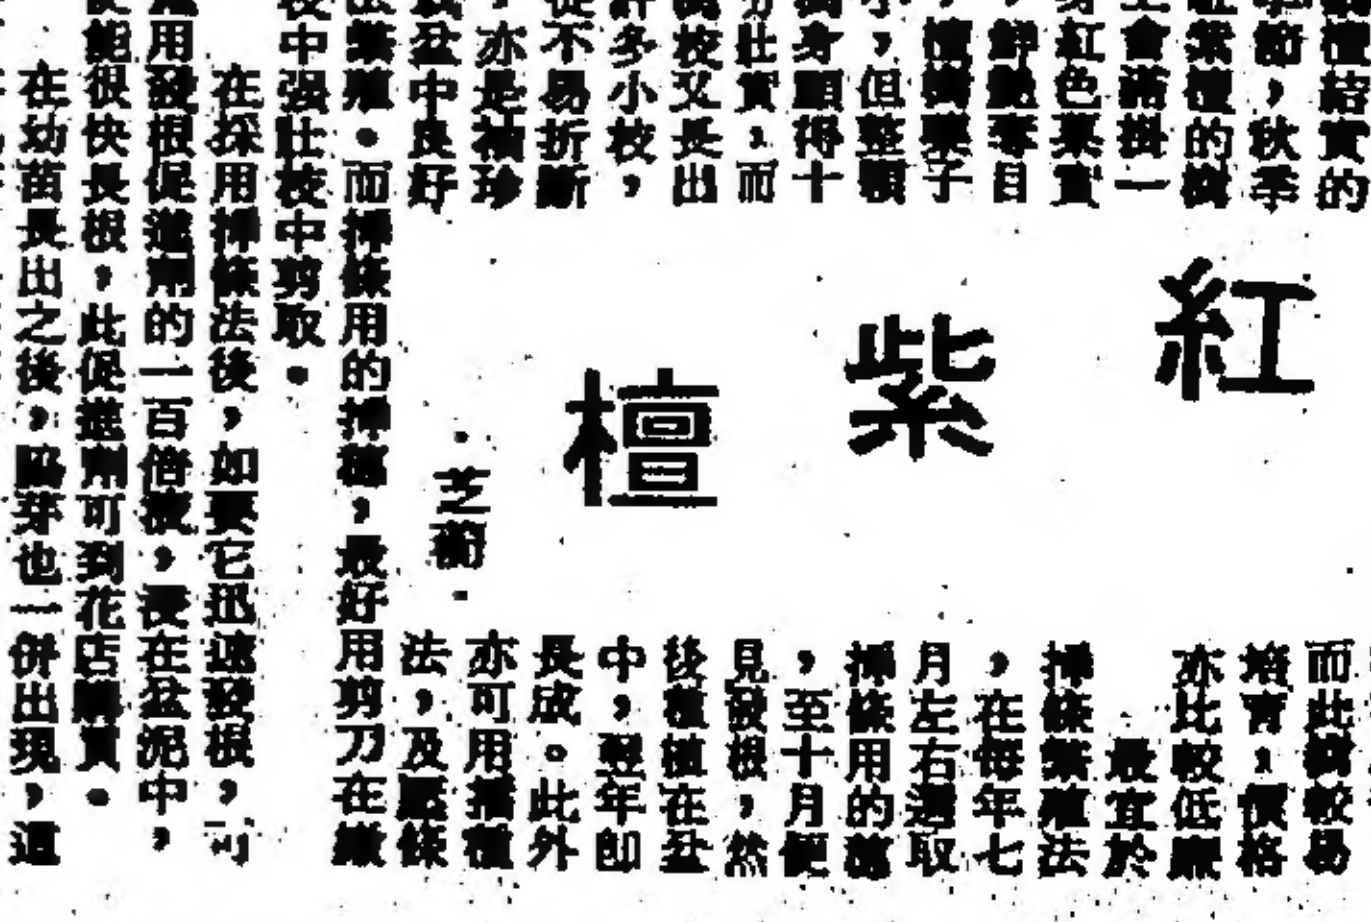 紅紫檀
·芝蘭·
檀結實的
季節，秋季
紅紫檀的樹
上會滿掛一
身紅色菓實
，鮮艷奪目
，檀樹菓子
小，但整顆
樹身顯得十
分壯實，而
枝又長出
許多小枝，
從不易折斷
，亦是袖珍
盆中良好
而此樹較易
培育，價格
亦比較低廉
最宜於
掃條繁殖法
，在每年七
月左右選取
掃條用的穗
，至十月便
見發根，然
後種植在盆
中，翌年即
長成。此外
亦可用播種
法，及壓條
法繁殖。而掃條用的掃穗，最好用剪刀在嫩
枝中强壯枝中剪取。
在採用掃條法後，如要它迅速發根，可
用發根促進劑的一百倍液，浸在盆泥中，
便能很快長根，此促進劑可到花店購買。
在幼苗長出之後，脇芽也一併出現，這